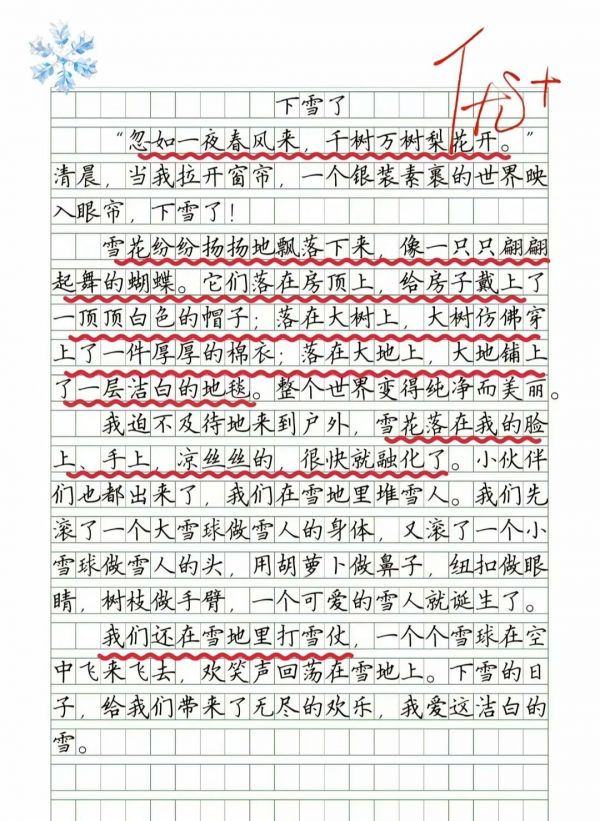 下雪了
“忽如一夜春风来，千树万树梨花开。”
清晨，当我拉开窗帘，一个银装素裹的世界映
入眼帘，下雪了！
雪花纷纷扬扬地飘落下来，像一只只翩翩
起舞的蝴蝶。它们落在房顶上，给房子戴上了
一顶顶白色的帽子；落在大树上，大树仿佛穿
上了一件厚厚的棉衣；落在大地上，大地铺上
了一层洁白的地毯。整个世界变得纯净而美丽。
我迫不及待地来到户外，雪花落在我的脸
上、手上，凉丝丝的，很快就融化了。小伙伴
们也都出来了，我们在雪地里堆雪人。我们先
滚了一个大雪球做雪人的身体，又滚了一个小
雪球做雪人的头，用胡萝卜做鼻子，纽扣做眼
睛，树枝做手臂，一个可爱的雪人就诞生了。
我们还在雪地里打雪仗，一个个雪球在空
中飞来飞去，欢笑声回荡在雪地上。下雪的日
子，给我们带来了无尽的欢乐，我爱这洁白的
雪。